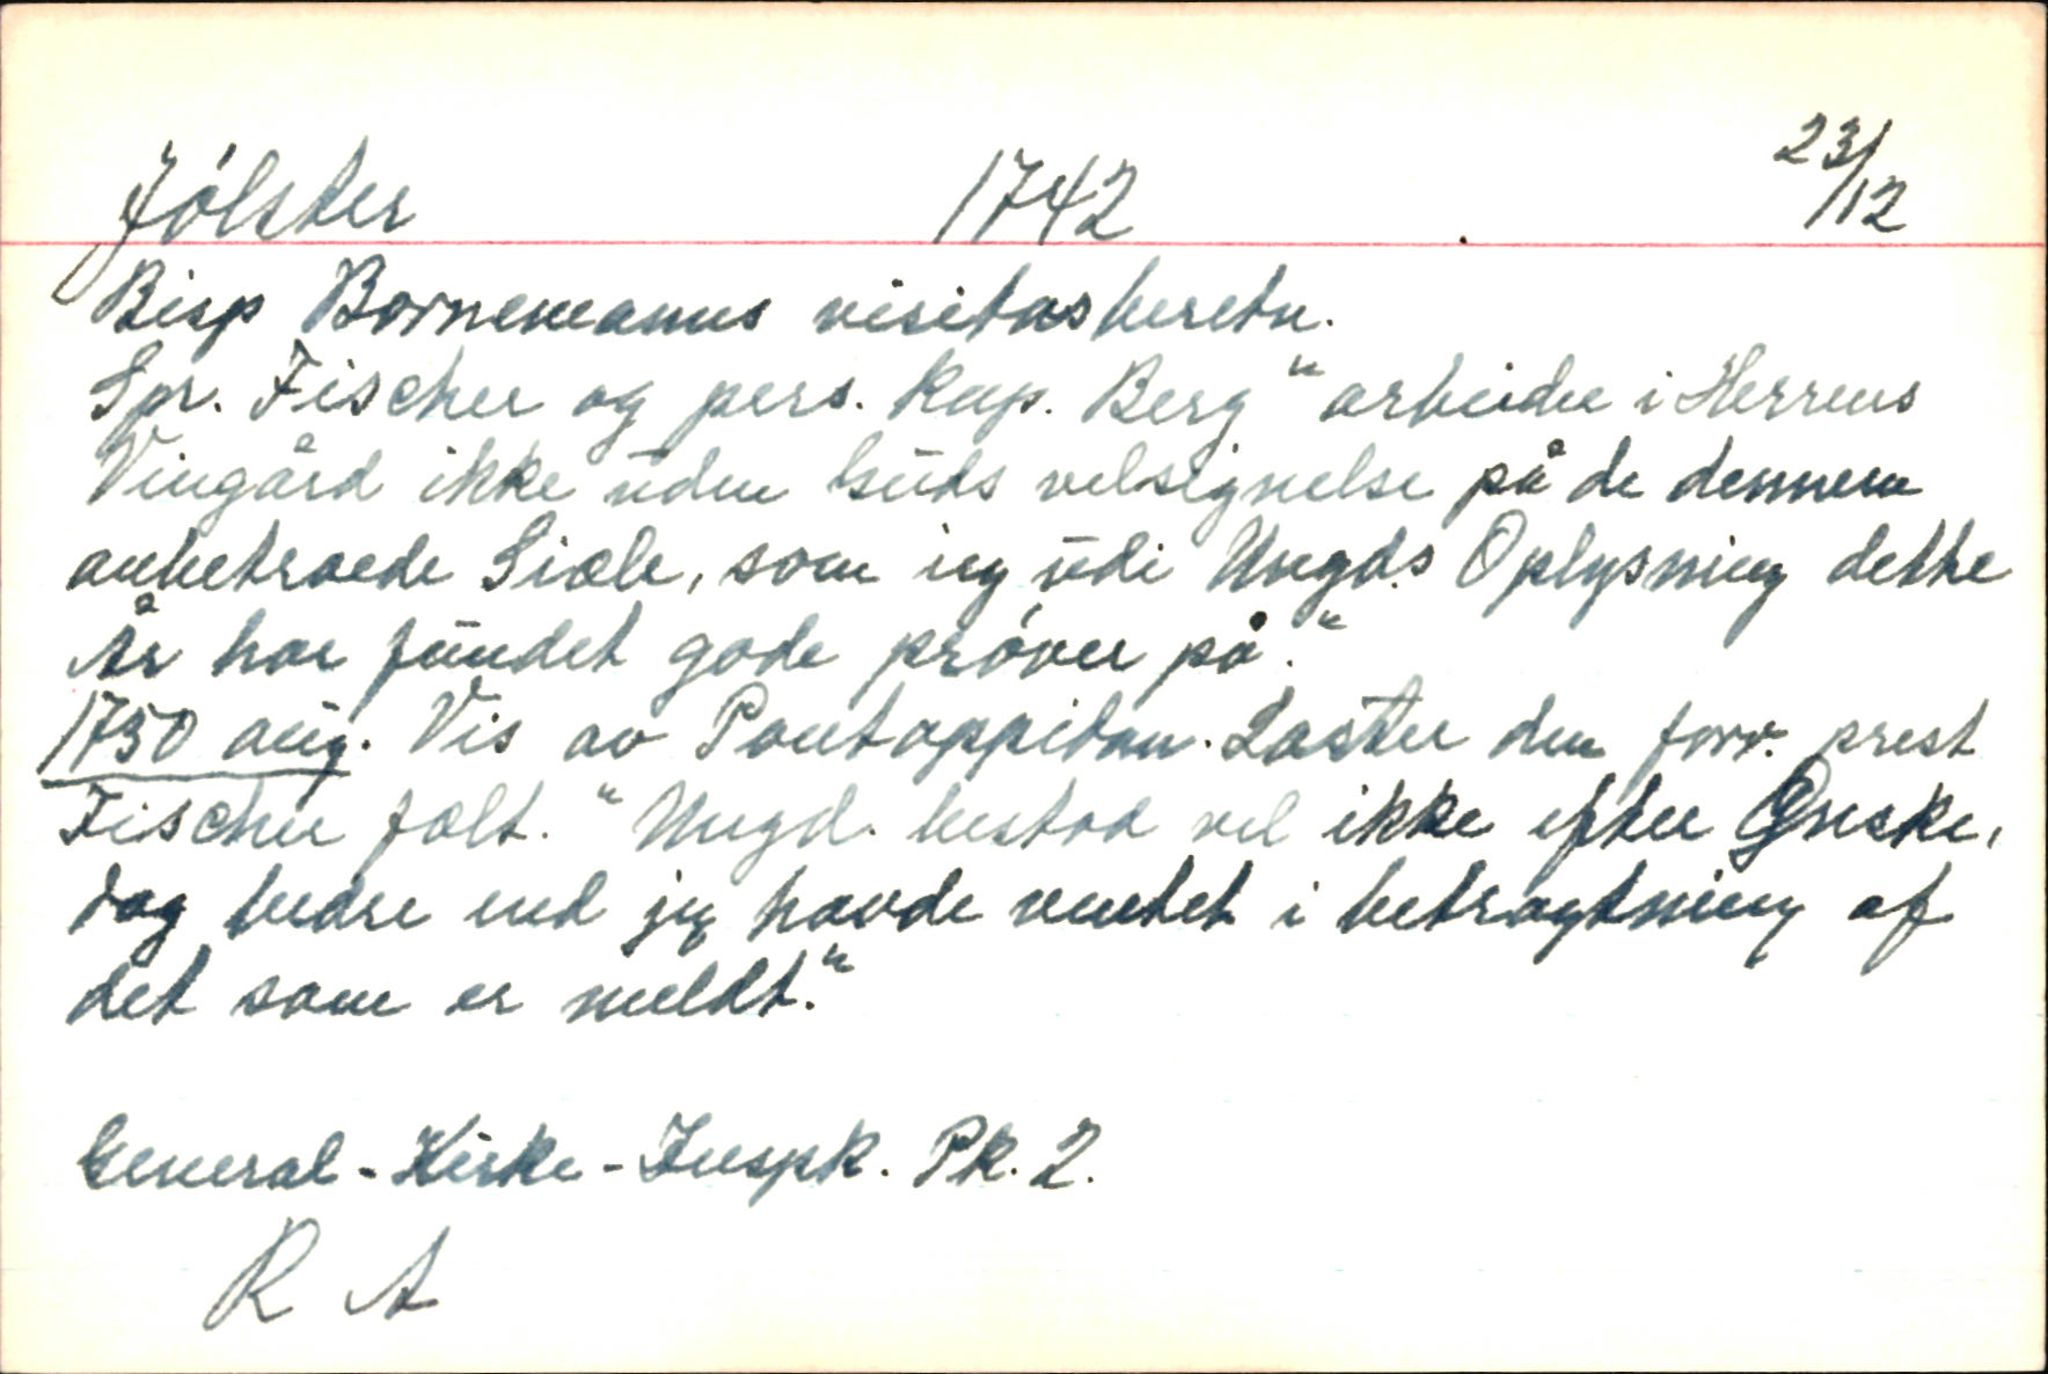 Jölster 1742 23/12
Bisp Bornemanns visitasberetn.
Spr. Fischer og pers. kap. Berg "arbeider i Herrens
Vingård ikke uden Guds velsignelse på de dennem
anbetroede Siæle, som ieg udi Ungds Oplysning dette
År har fundet gode prøver på."
1750 aug. Vis av Pontoppidan. Laster den forr. prest
Fischer fælt. "Ungd. bestod vel ikke efter Ønske,
dog bedre end jeg havde ventet i betragtning af
det som er meldt."
General-Kirke-Inspk. Pk. 2.
R A